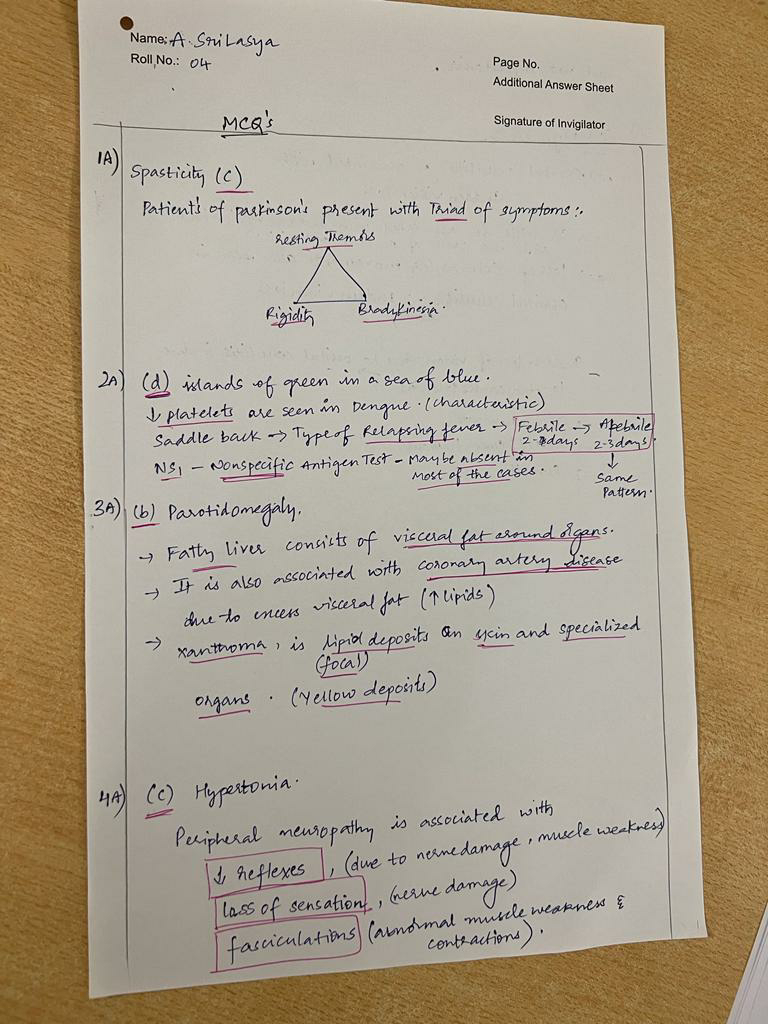 Name: A. Sri Lasya
Roll No.: 04
Page No.
Additional Answer Sheet
Signature of Invigilator
MCQ's
1A) Spasticity (c)
Patients of parkinson's present with Triad of symptoms :-
resting Tremors
Rigidity Bradykinesia.
2A) (d) islands of green in a sea of blue.
↓ platelets are seen in Dengue. (characteristic)
Saddle back → Type of Relapsing fever → Febrile → Afebrile
2-3days 2-3days
↓
NS1 – Nonspecific Antigen Test – Maybe absent in
most of the cases.
Same
Pattern.
3A) (b) Parotidomegaly.
→ Fatty liver consists of visceral fat around organs.
→ It is also associated with coronary artery disease
due to excess visceral fat (↑ lipids)
→ xanthoma, is lipid deposits on skin and specialized
(focal)
organs. (Yellow deposits)
4A) (c) Hypertonia.
Peripheral neuropathy is associated with
↓ reflexes, (due to nerve damage, muscle weakness)
loss of sensation, (nerve damage)
fasciculations (abnormal muscle weakness &
contractions).